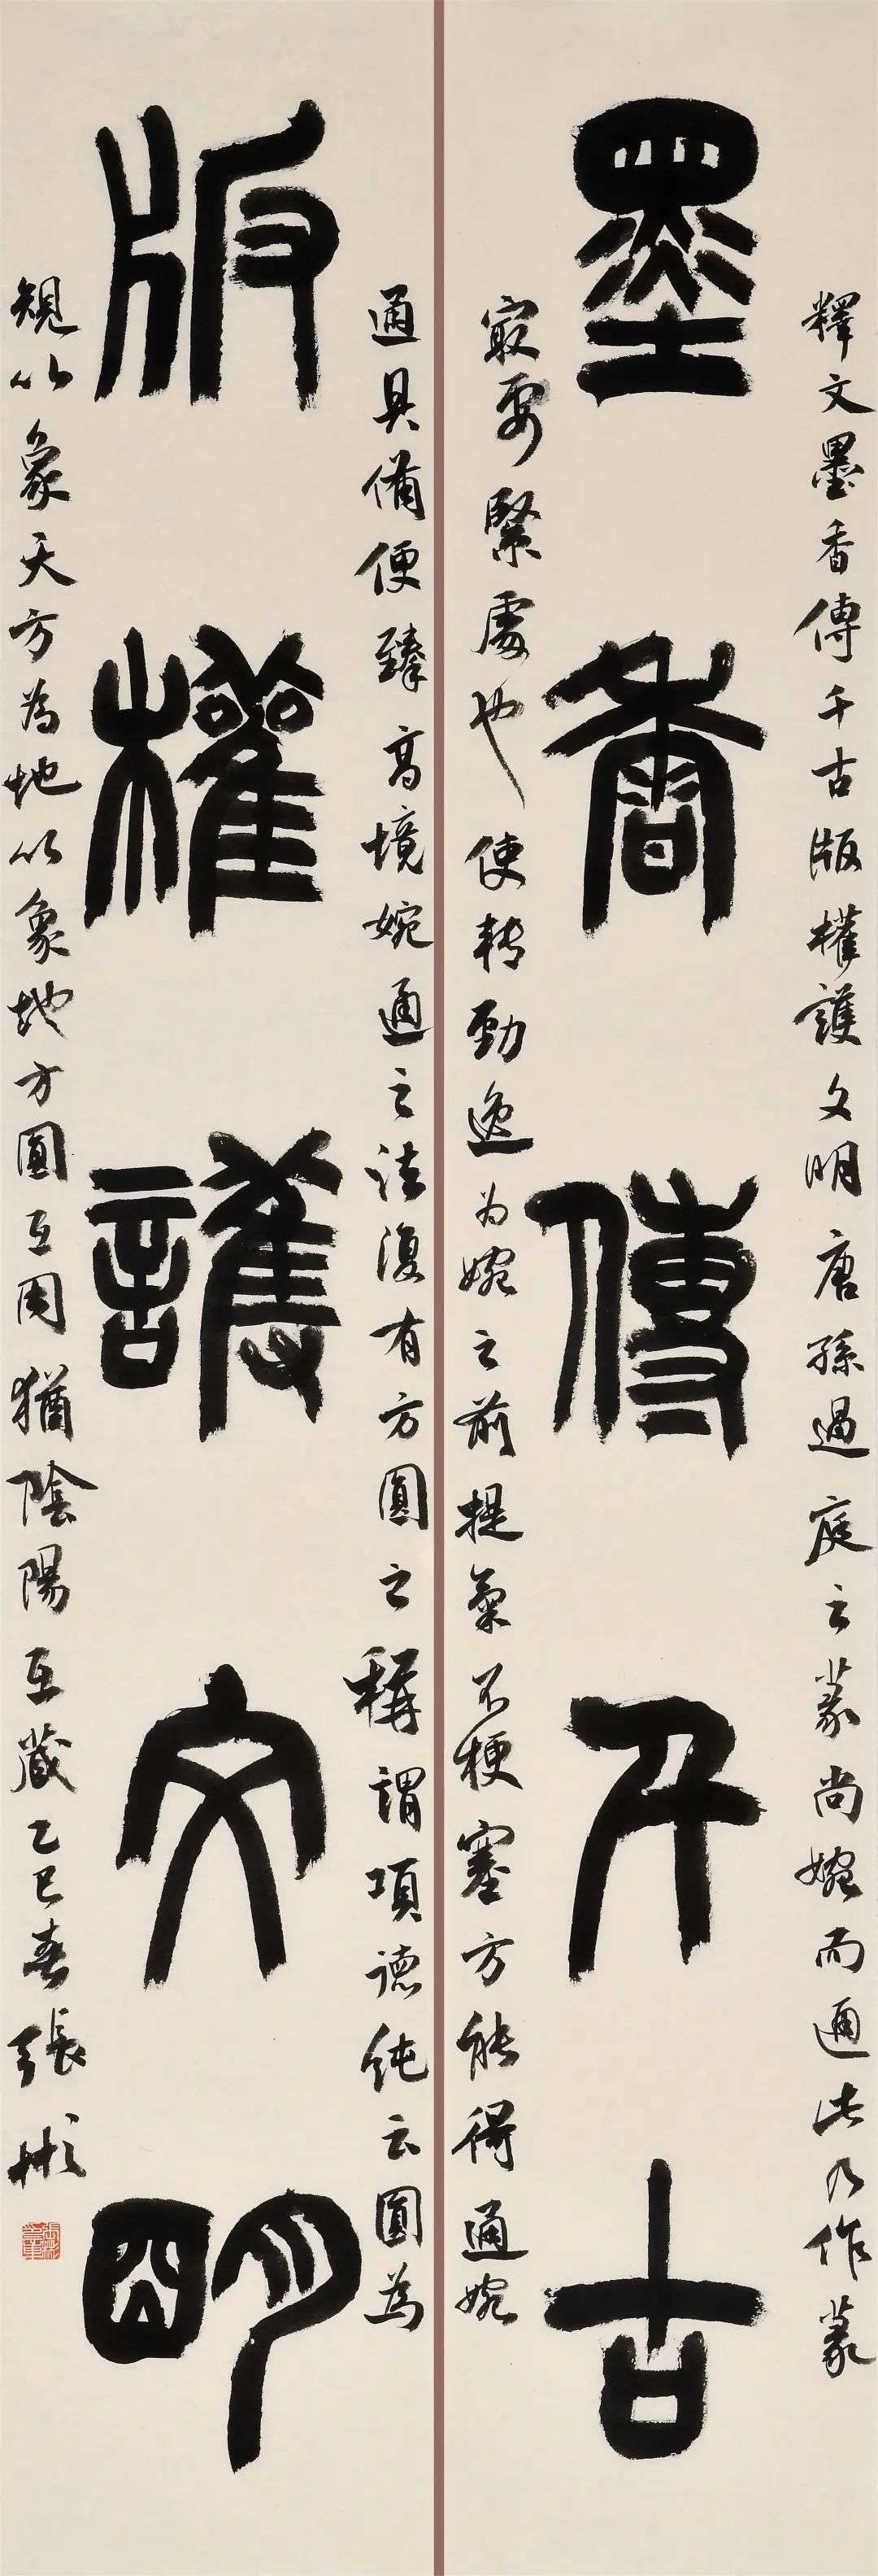 釋文墨香傳千古版權護文明唐孫過庭云篆尚婉而通此乃作篆
墨香傳千古
寂要緊處也使轉勁逸为婉之前提氣不梗塞方能得通婉
通具備便臻高境婉通之法復有方圓之稱謂項德純云圓為
版權護文明
規以象天方為地以象地方圓互用猶陰陽互藏乙巳春張彬